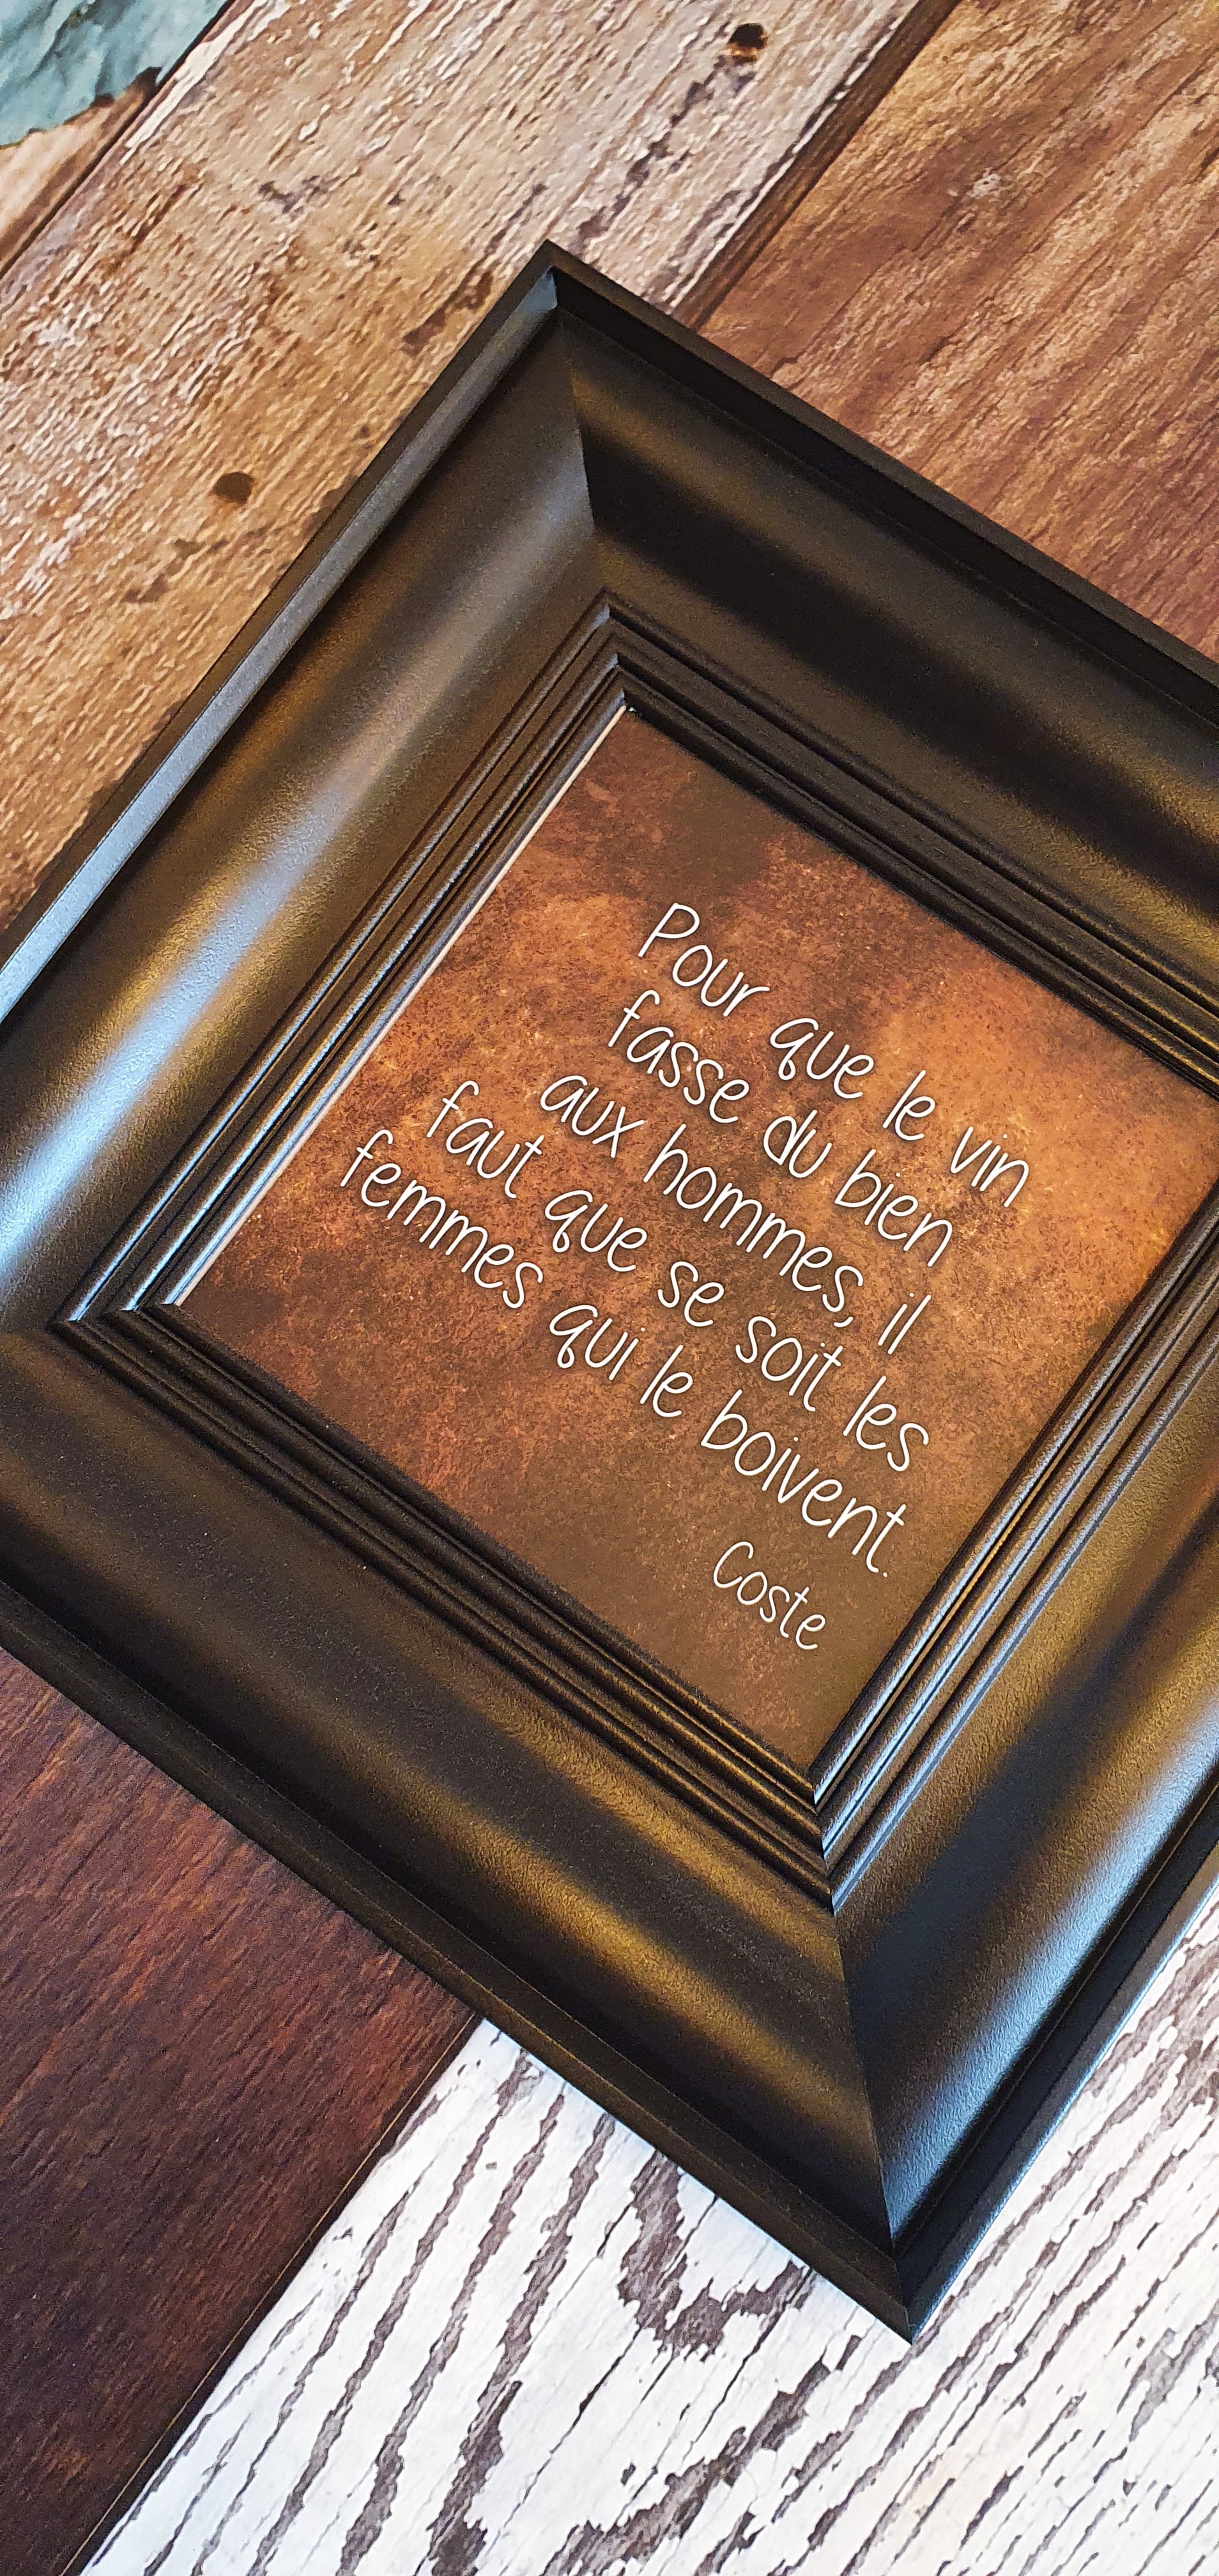 Pour que le vin
fasse du bien
aux hommes, il
faut que se soit les
femmes qui le boivent.
Coste